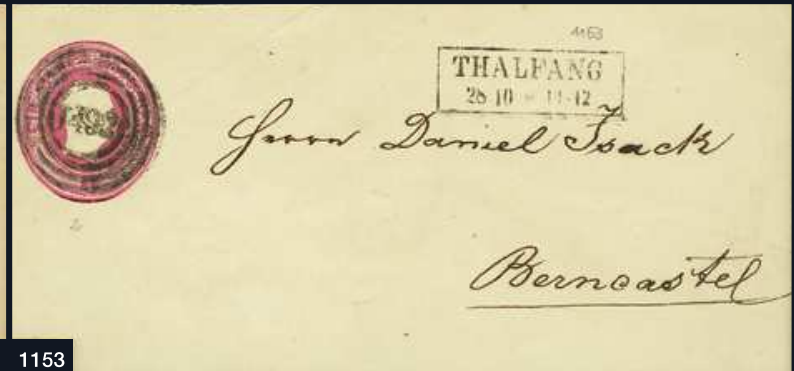 1153
THALFANG
28 10 * 11-12
Herrn Daniel Isack
Berncastel
1153